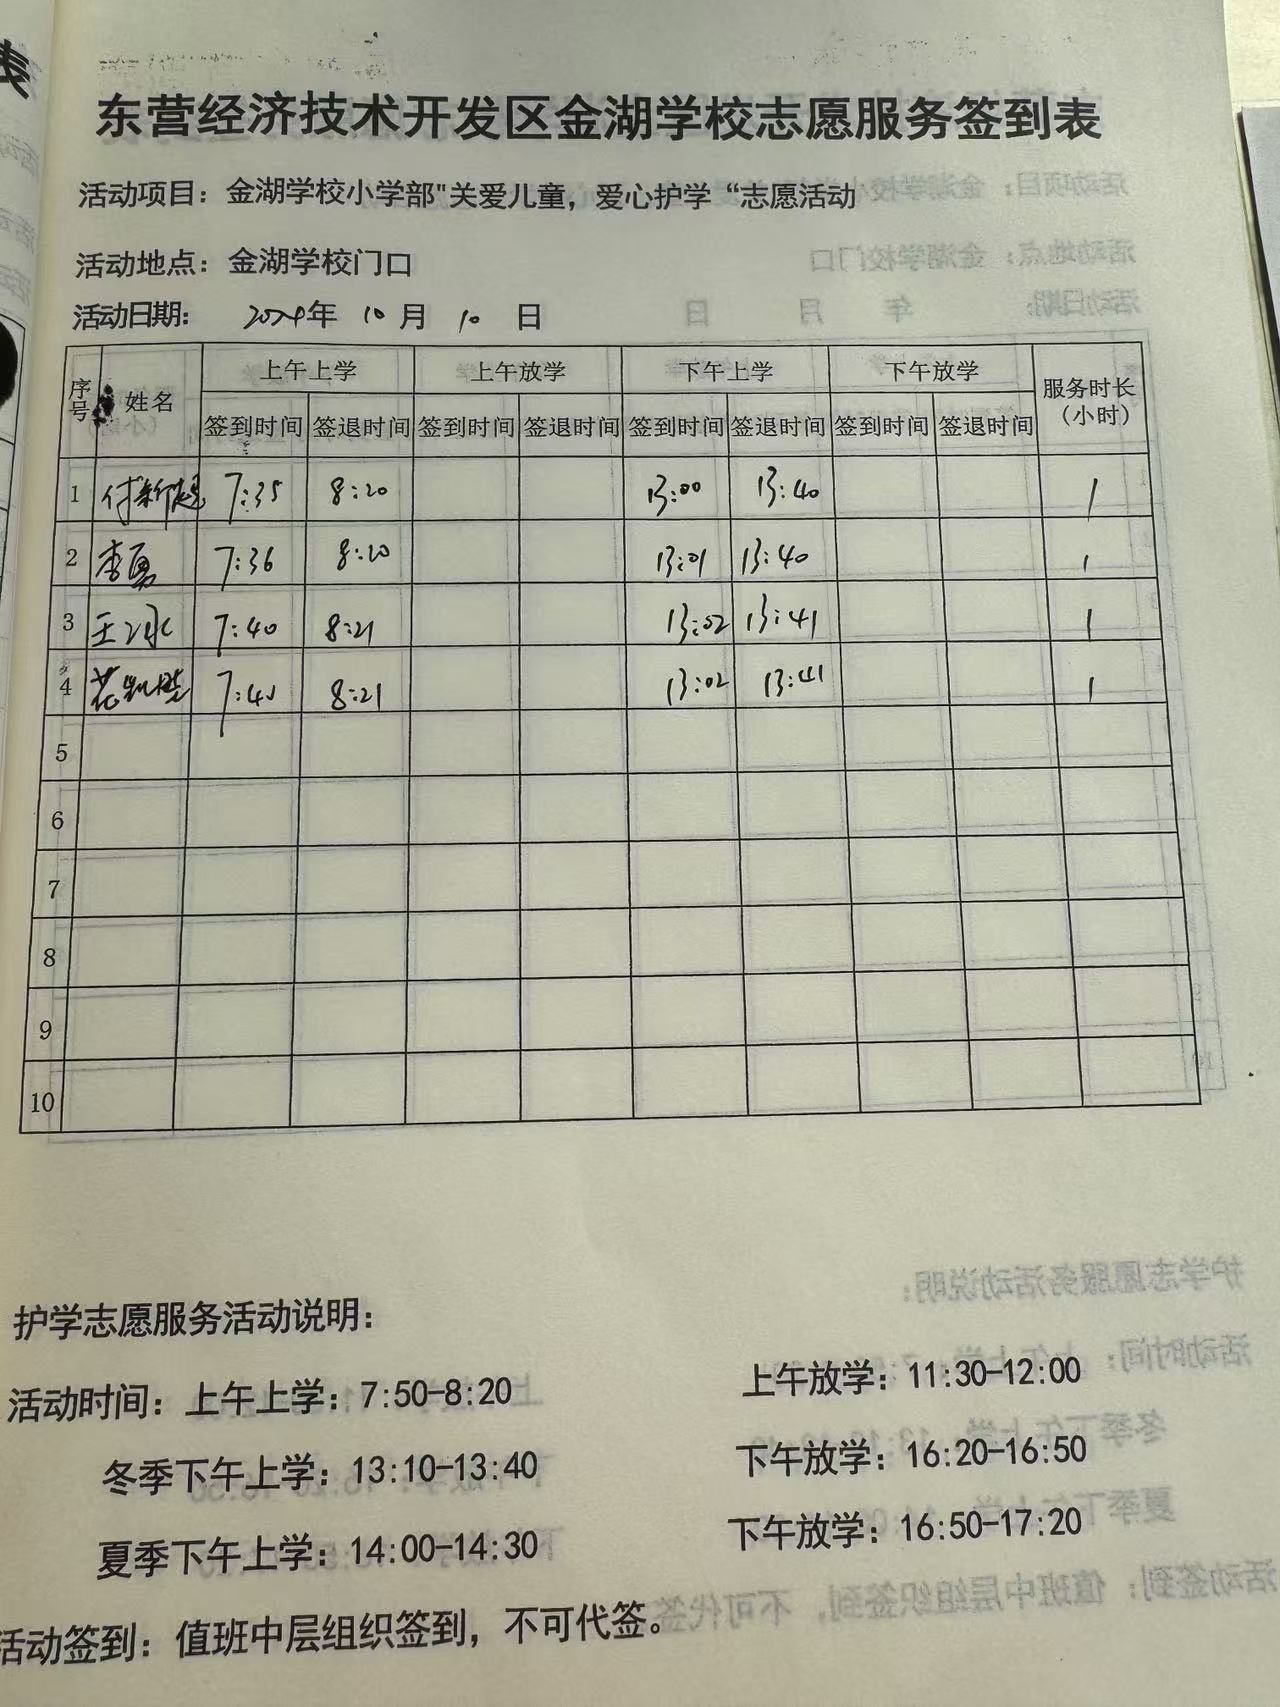 东营经济技术开发区金湖学校志愿服务签到表
活动项目：金湖学校小学部"关爱儿童，爱心护学“志愿活动
活动地点：金湖学校门口
活动日期： 2024年 10 月 10 日
序号 姓名 上午上学 上午放学 下午上学 下午放学 服务时长（小时）
签到时间 签退时间 签到时间 签退时间 签到时间 签退时间 签到时间 签退时间
1 7:35 8:20 13:00 13:40 1
2 李勇 7:36 8:20 13:01 13:40 1
3 王冰 7:40 8:21 13:02 13:41 1
4 8:21 13:02 13:41 1
5
6
7
8
9
10
护学志愿服务活动说明：
活动时间：上午上学：7:50-8:20 上午放学：11:30-12:00
冬季下午上学：13:10-13:40 下午放学：16:20-16:50
夏季下午上学：14:00-14:30 下午放学：16:50-17:20
活动签到：值班中层组织签到，不可代签。